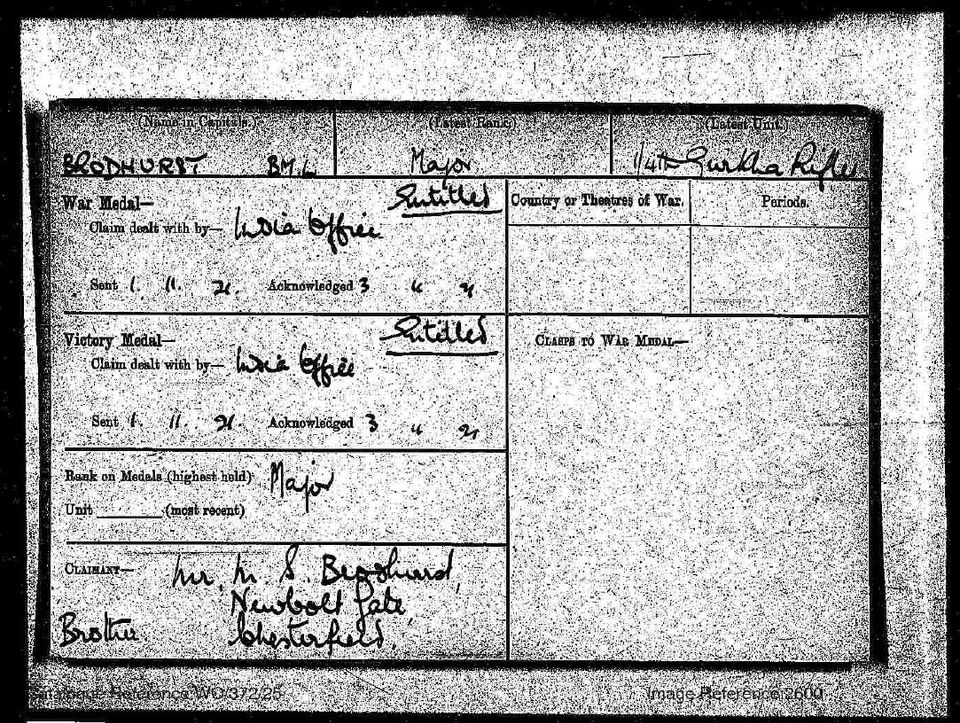 (Name in Capitals.) (Latest Rank.) (Latest Unit.)
BRODHURST B.M.L Major 1/4th Gurkha Rifles
War Medal— Entitled Country or Theatres of War. Periods.
Claim dealt with by— India Office
Sent 1. 11. 21. Acknowledged 3 " 21
Victory Medal— Entitled CLASPS TO WAR MEDAL—
Claim dealt with by— India Office
Sent 1. 11. 21. Acknowledged 3 " 21
Rank on Medals (highest held) Major
Unit (most recent)
CLAIMANT— Mr. M. S. Brodhurst,
Newbolt Gate,
Brother Chesterfield.
Catalogue Reference:WO/372/25 Image Reference:2600